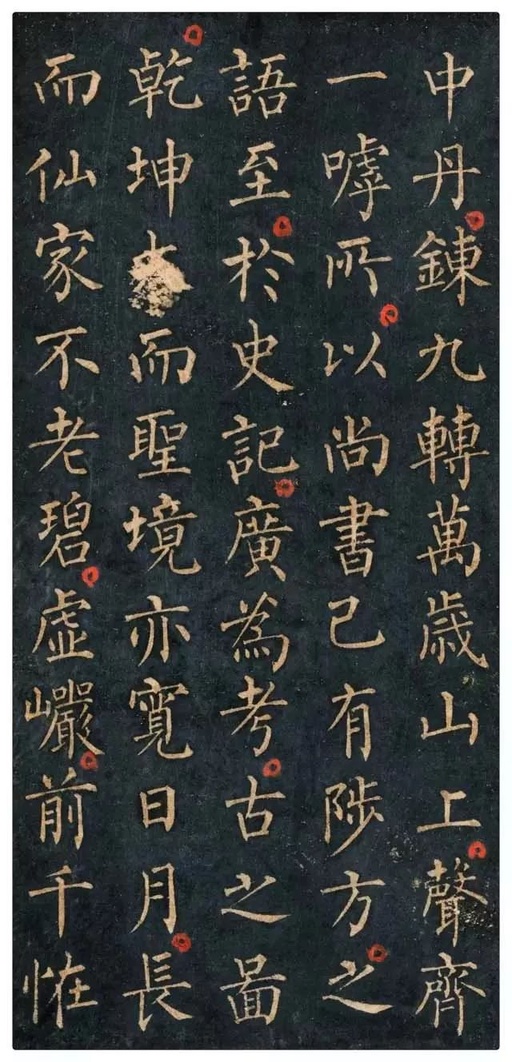 中丹錬九轉萬歳山上聲齊
一嘑所以尚書已有陟方之
語至於史記廣為考古之啚
乾坤大而聖境亦寛日月長
而仙家不老碧虛巗前千恠